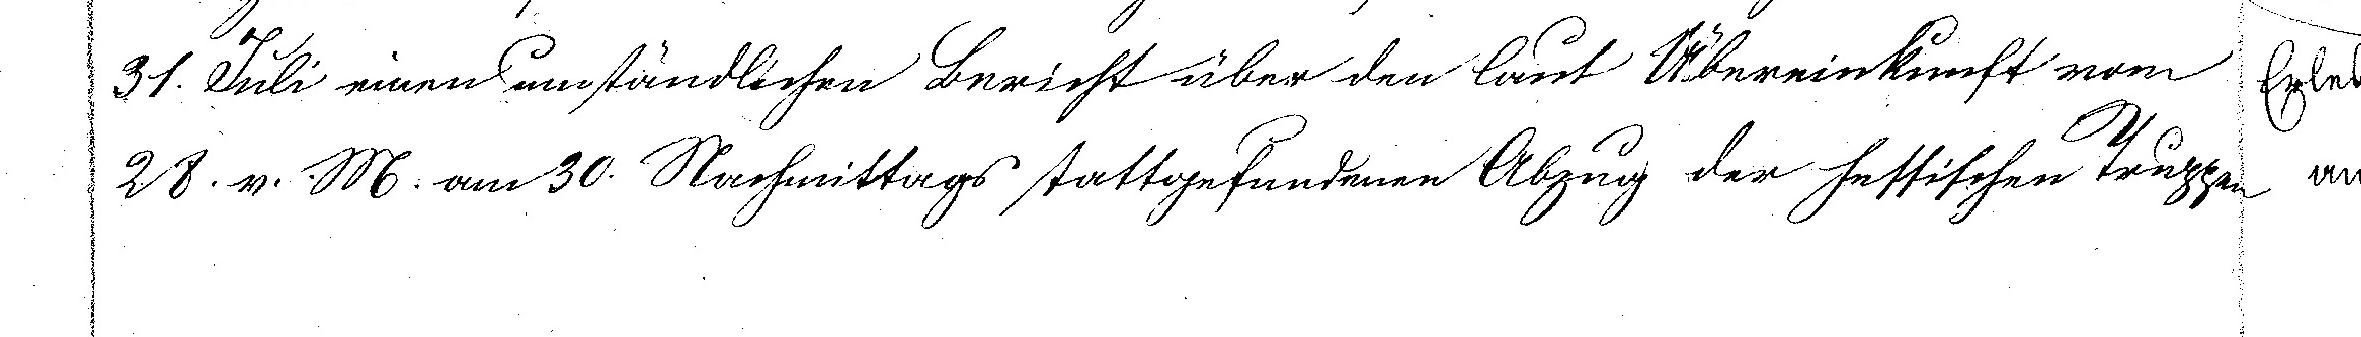 31. Juli einen umständlichen Bericht über den laut Übereinkunft vom
28. v. M. am 30. Nachmittags stattgefundenen Abzug der hessischen Truppen